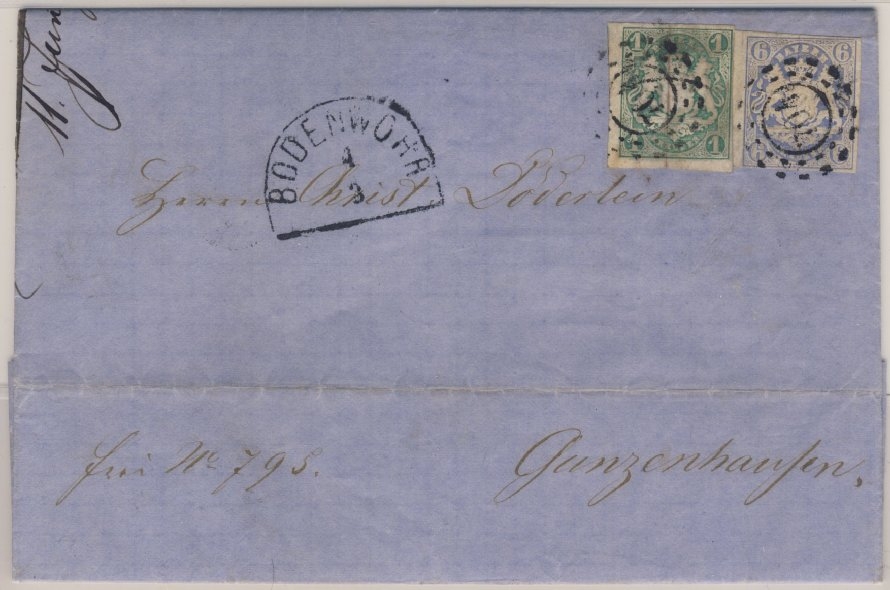 11. Jun
1 1
1
6 BAYERN 6
BODENWÖHR
4
3
Herrn Christ Döderlein
frei No 795.
Gunzenhausen.